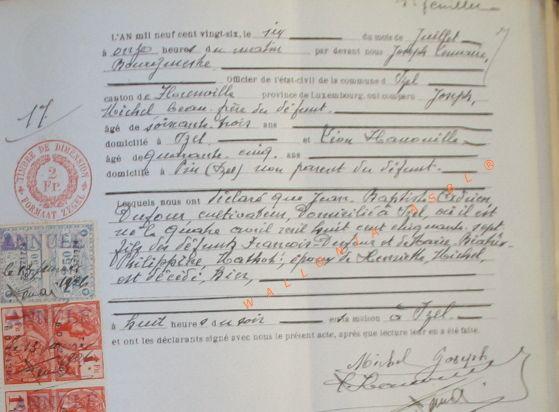 feuillet
L'AN mil neuf cent vingt-six, le six du mois de Juillet
à onze heures du matin par devant nous Joseph
Bourgmestre
Officier de l'état-civil de la commune d' Izel
canton de Florenville province de Luxembourg, ont comparu Joseph,
Michel beau-frère du défunt.
âgé de soixante trois ans
domicilié à Izel et Léon Hanouille
âgé de quarante cinq ans
domicilié à Pin (Izel) non parent du défunt.
Lesquels nous ont déclaré que Jean Baptiste
Dufour, cultivateur, domicilié à Izel, où il est
né le quatre avril mil huit cent cinquante sept
fils des défunts François Dufour et de Marie
Philippine époux de Henriette Michel,
est décédé, hier,
à huit heures du soir en sa maison à Izel
et ont les déclarants signé avec nous le présent acte, après que lecture leur en a été faite.
Michel Joseph
17
TIMBRE DE DIMENSION
2
Fr.
FORMAT ZEGEL
ANNULÉ
50
50
1926
ANNULÉ
WALLONIA ASBL ®